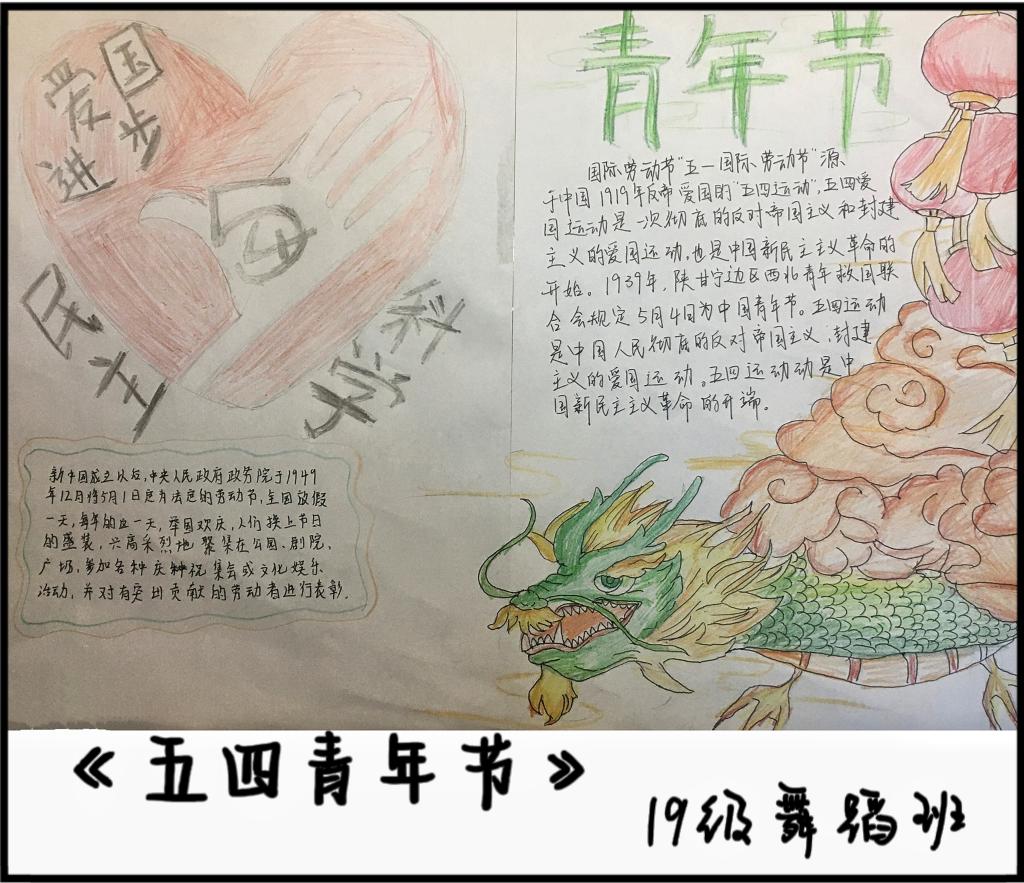 爱国
进步
5.4
民主
科学
新中国成立以后,中央人民政府政务院于1949
年12月将5月1日定为法定的劳动节,全国放假
一天,每年的这一天,举国欢庆,人们换上节日
的盛装,兴高采烈地聚集在公园、剧院、
广场,参加各种庆种祝集会或文化娱乐
活动,并对有突出贡献的劳动者进行表彰.
青年节
国际劳动节"五一国际劳动节"源
于中国1919年反帝爱国的"五四运动",五四爱
国运动是一次彻底的反对帝国主义和封建
主义的爱国运动,也是中国新民主主义革命的
开始。1939年,陕甘宁边区西北青年救国联
合会规定5月4日为中国青年节。五四运动
是中国人民彻底的反对帝国主义、封建
主义的爱国运动。五四运动动是中
国新民主主义革命的开端。
《五四青年节》
19级舞蹈班